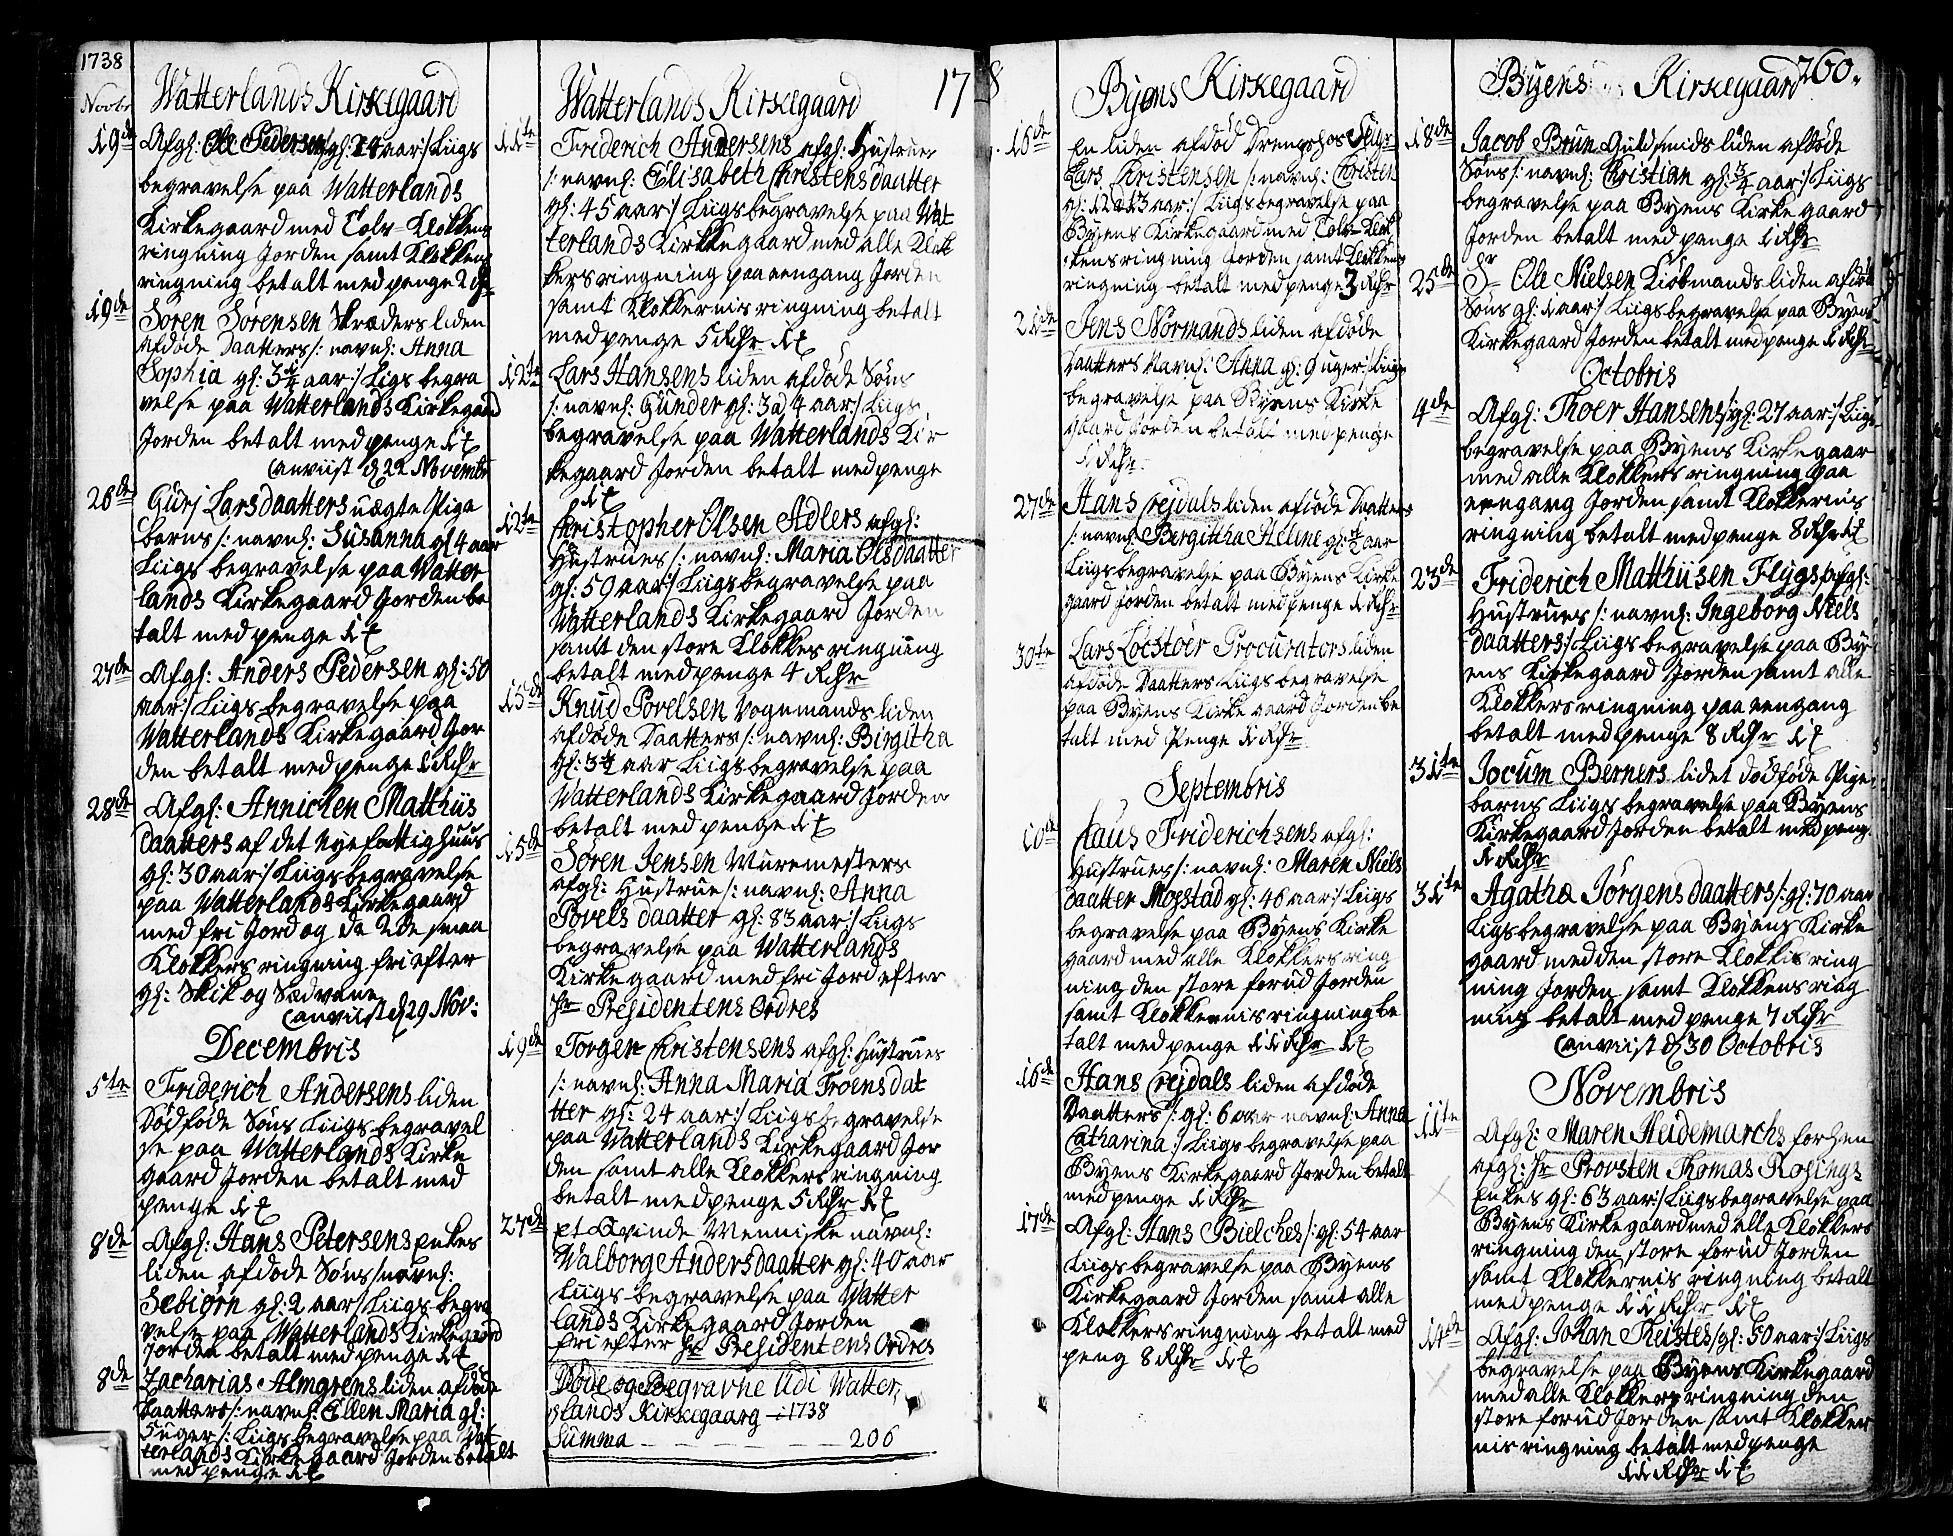 1738
Novbr
Watterlands Kirkegaard
19de Afgl: Ole Pedersens /: gl: 24 aar :/ Liigs
begravelse paa Watterlands
Kirkegaard med Tolv-Klokkens
ringning Jorden samt Klokkens
ringning betalt med penge 2 Rdr
19de Soren Sörensen Skræders liden
afdøde Daatters /: navnl: Anna
Sophia gl: 3 1/4 aar :/ Ligs begra
velse paa Watterlands Kirkegaard
Jorden betalt med penge
anviist d 22 Novembr
26de Guri Larsdaatters uægte Piga
barns /: navnl: Susanna gl 4 aar
Liigs begravelse paa Watter
lands Kirkegaard Jorden be
talt med penge
27de Afgl: Anders Pedersen gl: 50
aar :/ Liigs begravelse paa
Watterlands Kirkegaard Jor
den betalt med penge 1 Rdr
28de Afgl: Annichen Matthiis
daatters af det Nye fattighuus
gl: 30 aar :/ Liigs begravelse
paa Watterlands Kirkegaard
med fri Jord og de 2de smaa
Klokkers ringning fri efter
gl: Skik og Sædvane
anviist d 29 Nov:
Decembris
5te Friderich Andersens liden
Dødføde Søns Liigs begravel
se paa Watterlands Kirke
gaard Jorden betalt med
penge
8de Afgl: Hans Petersens Enkes
liden afdøde Søns /: navnl:
Sebiörn gl: 2 aar :/ Liigs begra
velse paa Watterlands Kirkegaard
Jorden betalt med penge
8de Zacharias Almgrens liden afdøde
Daatters /: navnl: Ellen Maria gl:
5 uger :/ Liigs begravelse paa Wat
terlands Kirkegaard Jorden betalt
med penge
Watterlands Kirkegaard
17
11te Friderich Andersens afgl: Hustrues
/: navnl: Elisabeth Christensdaatter
gl: 45 aar :/ Liigs begravelse paa Wat
terlands Kirkegaard med alle Klok
kers ringning paa eengang Jorden
samt Klokkernis ringning betalt
med penge 5 Rdr
12te Lars Hansens liden afdøde Søns
/: navnl: Gunder gl: 3 a 4 aar :/ Liigs
begravelse paa Watterlands Kir
kegaard Jorden betalt med penge
12te Christopher Olsen Adlers afgl:
Hustrues /: navnl: Maria Olsdaatter
gl: 59 aar :/ Liigs begravelse paa
Watterlands Kirkegaard Jorden
samt den store Klokkes ringning
betalt med penge 4 Rdr
15de Knud Povelsen Vognmands liden
afdøde Daatters /: navnl: Birgitha
gl: 3 aar Liigs begravelse paa
Watterlands Kirkegaard Jorden
betalt med penge
15de Søren Jensen Muremesters
afgl: Hustrue /: navnl: Anna
Povels daatter gl: 83 aar :/ Liigs
begravelse paa Watterlands
Kirkegaard med fri Jord efter
Hr Presidentens Ordres
19de Torger Christensens afgl: Hustrues
/: navnl: Anna Maria Troensdat
tter gl: 24 aar :/ Liigs begravelse
paa Watterlands Kirkegaard Jor
den samt alle Klokkers ringning
betalt med penge 5 Rdr
27de et Qvinde Menniske navnl:
Walborg Andersdaatter gl: 40 aar
Liigs begravelse paa Watter
lands Kirkegaard Jorden
fri efter Hr Presidentens Ordres
Døde og Begravne Udi Watter,
lands Kirkegaarg - i 1738
Summa - - - - 206
8
Byens Kirkegaard
16de En liden afdød Drengs hos
Lars Christensen /: navnl: Christen
gl: 12 a 13 aar :/ Liigs begravelse paa
Byens Kirkegaard med Tolv-Klok
kens ringning Jorden samt Klokkens
ringning betalt med penge 3 Rdr
Jens Normands liden afdøde
Daatters navnl: Anna gl: 9 uger :/ Liigs
begravelse paa Byens Kirke
gaard Jorden betalt med penge
1 Rdr
27de Hans Crejdals liden afdøde Daatters
/: navnl: Birgittha Helene gl: 1/2 aar
Liigs begravelse paa Byens Kirke
gaard Jorden betalt med penge 1 Rdr
30te Lars Löcstöer Procurators liden
afdøde Daatters Liigs begravelse
paa Byens Kirkegaard Jorden be
talt med Penge 1 Rdr
Septembris
10de Claus Friderichsens afgl:
Hustrues /: navnl: Maren Niels
daatter Mogstad gl: 46 aar :/ Liigs
begravelse paa Byens Kirke
gaard med alle Klokkers ring
ning den store forud Jorden
samt Klokkernis ringning be
talt med penge 11 Rdr
16de Hans Crejdals liden afdøde
Daatters /: gl: 6 aar navnl: Anna
Catharina :/ Liigs begravelse paa
Byens Kirkegaard Jorden betalt
med penge 1 Rdr
17de Afgl: Hans Bielches /: gl: 54 aar
Liigs begravelse paa Byens
Kirkegaard Jorden samt alle
Klokkers ringning betalt med
peng 8 Rdr
Byens Kirkegaard 260.
18de Jacob Brun Guldsmids liden afdøde
Søns /: navnl: Christian gl: 3/4 aar :/ Liigs
begravelse paa Byens Kirkegaard
Jorden betalt med penge 1 Rdr
25de Sr Ole Nielsen Kiöbmands liden afdøde
Søns gl: 1 aar :/ Liigs begravelse paa Byens
Kirkegaard Jorden betalt med penge 1 Rdr
Octobris
4de Afgl: Thoer Hansens /: gl: 27 aar :/ Liigs
begravelse paa Byens Kirkegaar
med alle Klokkers ringning paa
eengang Jorden samt Klokkernis
ringning betalt med penge 8 Rdr
23de Friderich Matthiisen Flygs afgl:
Hustrues /: navnl: Ingeborg Niels
daatters :/ Liigs begravelse paa By
ens Kirkegaard Jorden samt alle
Klokkers ringning paa eengang
betalt med penge 8 Rdr
31te Jocum Berners lidet dødføde Pige
barns Liigs begravelse paa Byens
Kirkegaard Jorden betalt med peng.
1 Rdr
31te Agatha Jörgens daatters /: gl: 70 aar
Ligs begravelse paa Byens Kirke
gaard med den store Klokkis ring
ning Jorden samt Klokkens ring
ning betalt med penge 7 Rdr
anviist d 30 Octobris
Novembris
11te Afgl: Maren Heidemarchs forhen
afgl: Hr Provsten Thomas Rosings
Enkes gl: 63 aar :/ Liigs begravelse paa
Byens Kirkegaard med alle Klokkers
ringning den store forud Jorden
samt Klokkernis ringning betalt
med penge 11 Rdr
14de Afgl: Johan Theistes /: gl: 50 aar :/ Liigs
begravelse paa Byens Kirkegaard
med alle Klokkers ringning den
store forud Jorden samt Klokker
nis ringning betalt med penge
11 Rdr